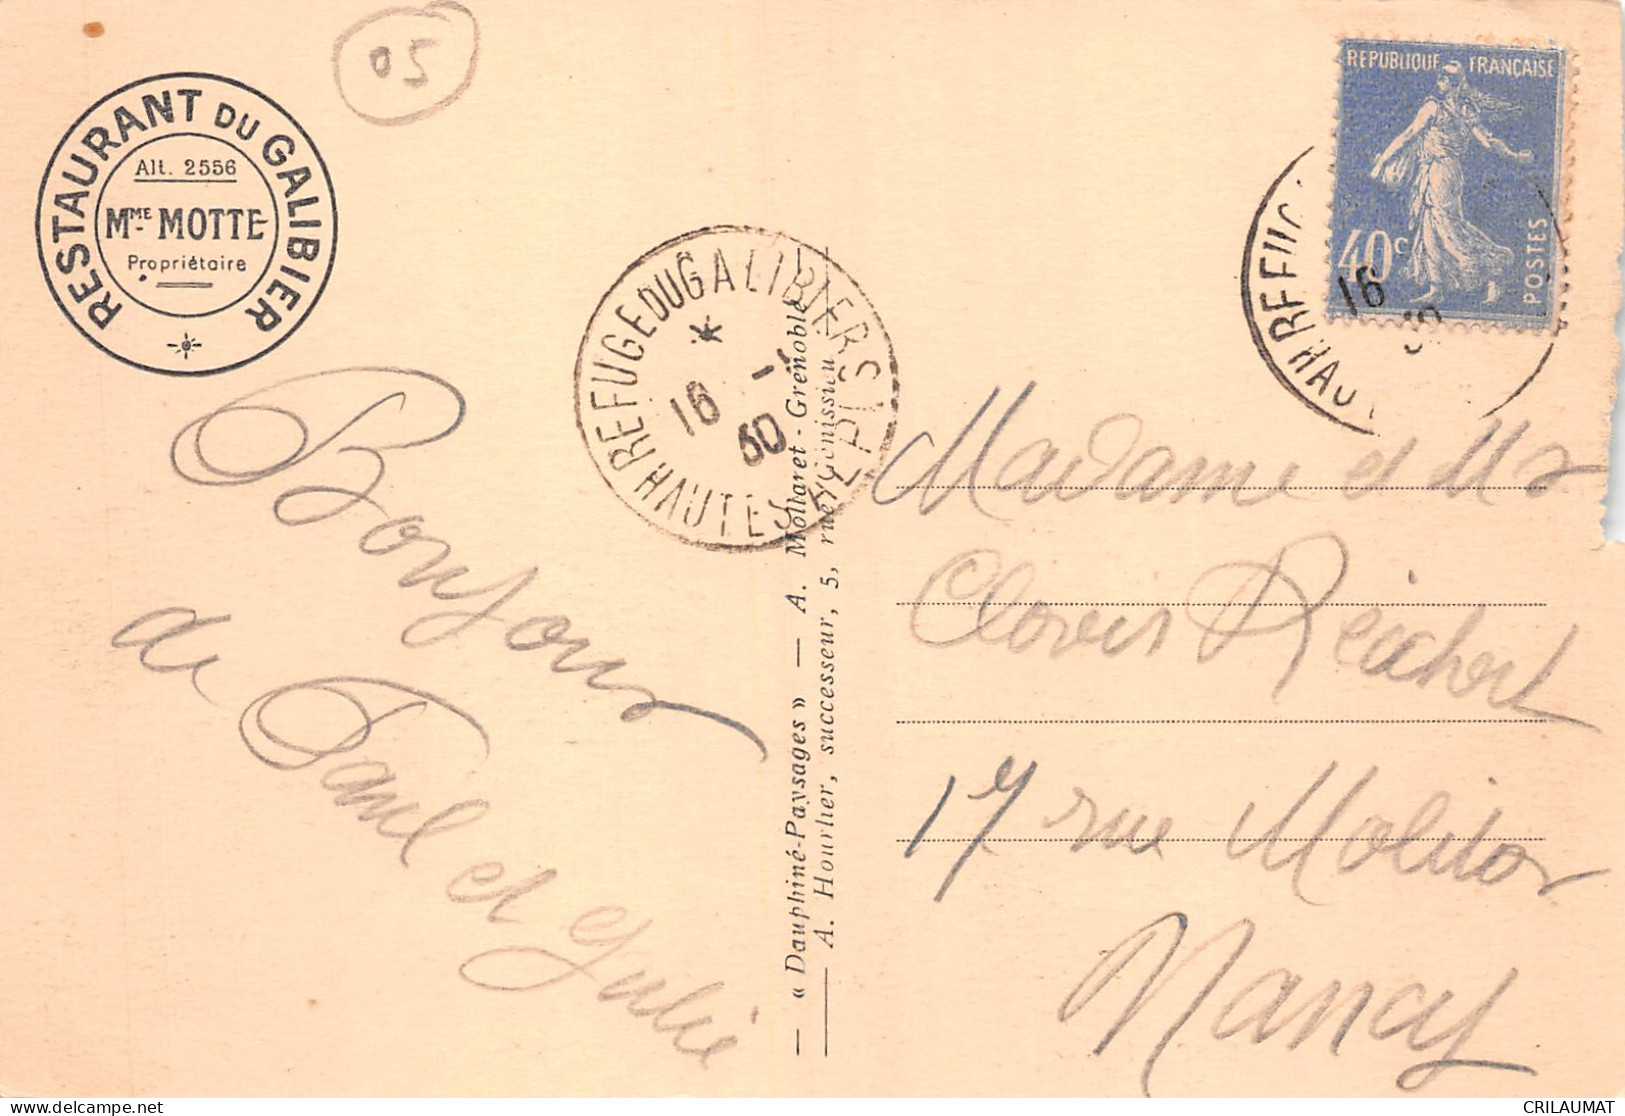 05
RESTAURANT DU GALIBIER
Alt. 2556
Mme MOTTE
Propriétaire
REPUBLIQUE FRANÇAISE
40c
POSTES
REFUGE DU GALIBIER S
HAUTES ALPES
16
30
REFUG
HAUT
16
Bonjour
de Paul et Julie
« Dauphiné-Paysages » — A. Mollaret - Grenoble
A. Hourlier, successeur, 5, rue Gonissieu
Madame et Mr
Clovis Reichert
17 rue Molitor
Nancy
CRILAUMAT